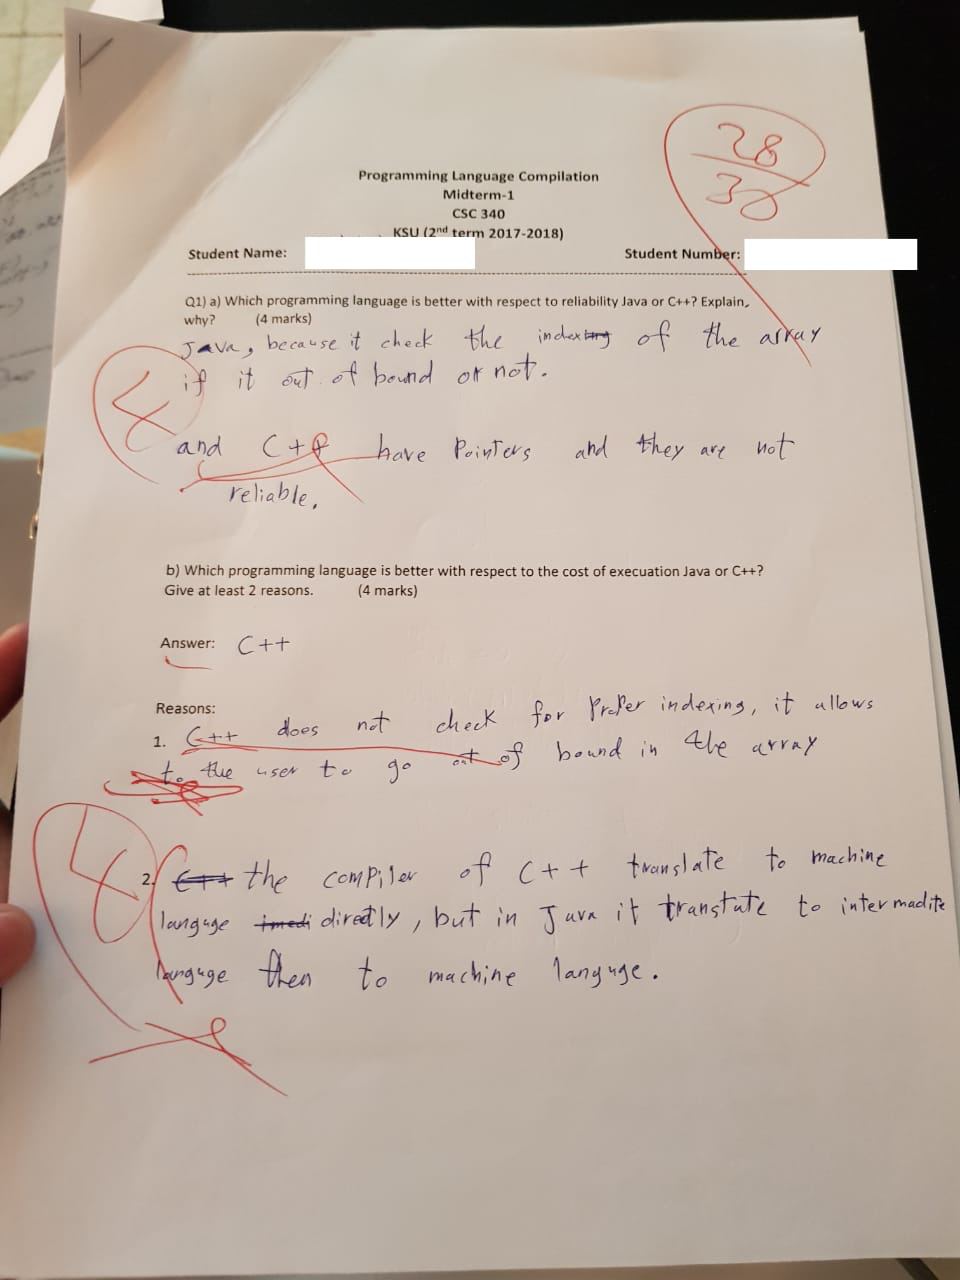 28
30
Programming Language Compilation
Midterm-1
CSC 340
KSU (2nd term 2017-2018)
Student Name:
Student Number:
Q1) a) Which programming language is better with respect to reliability Java or C++? Explain,
why? (4 marks)
Java, because it check the indexing of the array
if it out of bound or not.
4
and C++ have Pointers and they are not
reliable.
b) Which programming language is better with respect to the cost of execuation Java or C++?
Give at least 2 reasons. (4 marks)
Answer: C++
Reasons:
1. C++ does not check for Proper indexing, it allows
to the user to go out of bound in the array
4
2. C++ the compiler of C++ translate to machine
languge imedi directly, but in Java it transtate to intermadite
languge then to machine languge.